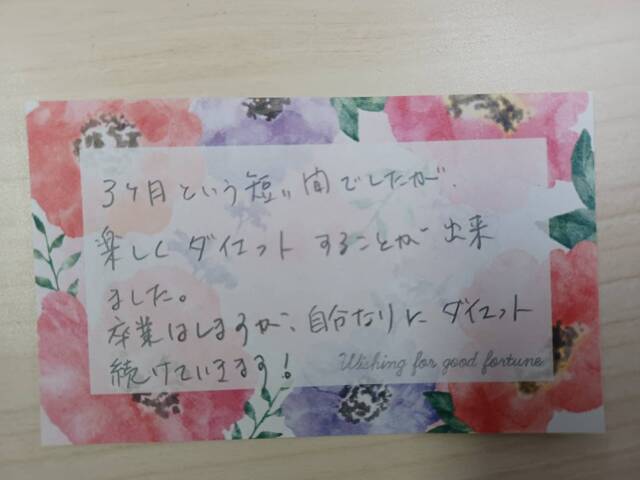 3ヶ月という短い間でしたが、
楽しくダイエットすることが出来
ました。
卒業はしますが、自分なりにダイエット
続けていきます!
Wishing for good fortune